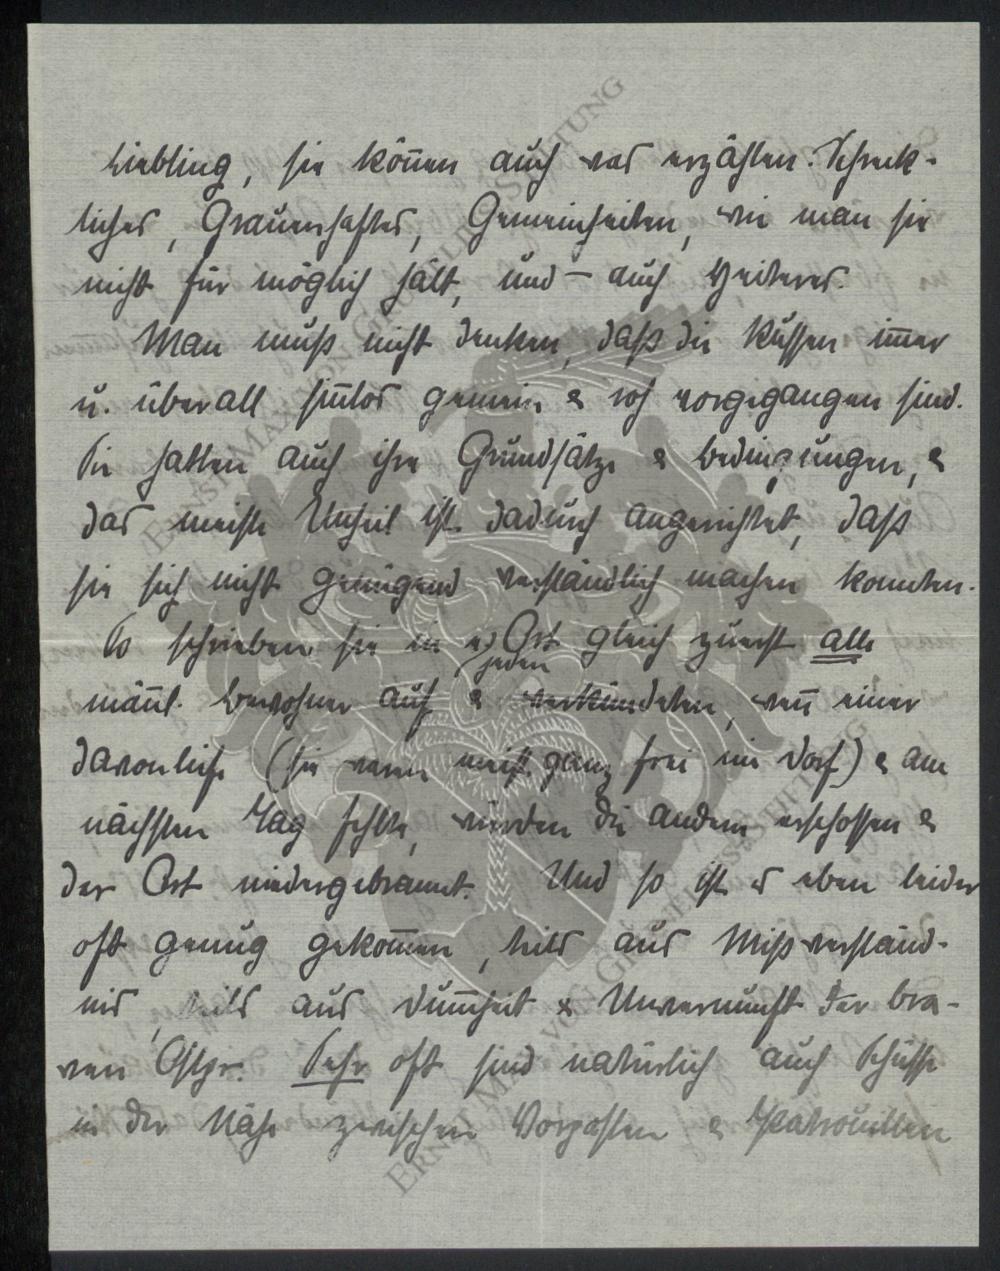 Liebling, sie können auch was erzählen. Schreck-
liches, Grauenhaftes, Gemeinheiten, wie man sie
nicht für möglich hält, und – auch Heiteres.
Man muß nicht denken, daß die Russen immer
u. überall sinnlos gemein & roh vorgegangen sind.
Sie hatten auch ihre Grundsätze & Bedingungen, &
das meiste Unheil ist dadurch angerichtet, daß
sie sich nicht genügend verständlich machen konnten.
So schrieben sie in jeden Ort gleich zuerst alle
männl. Bewohner auf & verkündeten, wenn einer
davonliefe (sie waren meist ganz frei im Dorf) & am
nächsten Tag fehlte, würden die andern erschossen &
der Ort niedergebrannt. Und so ist es eben leider
oft genug gekommen, teils aus Mißverständ-
nis, teils aus Dummheit & Unvernunft der bra-
ven Ostpr. Sehr oft sind natürlich auch Schüsse
in der Nähe zwischen Vorposten & Patrouillen
ERNST MAX VON GRUNELIUS-STIFTUNG
ERNST MAX VON GRUNELIUS-STIFTUNG